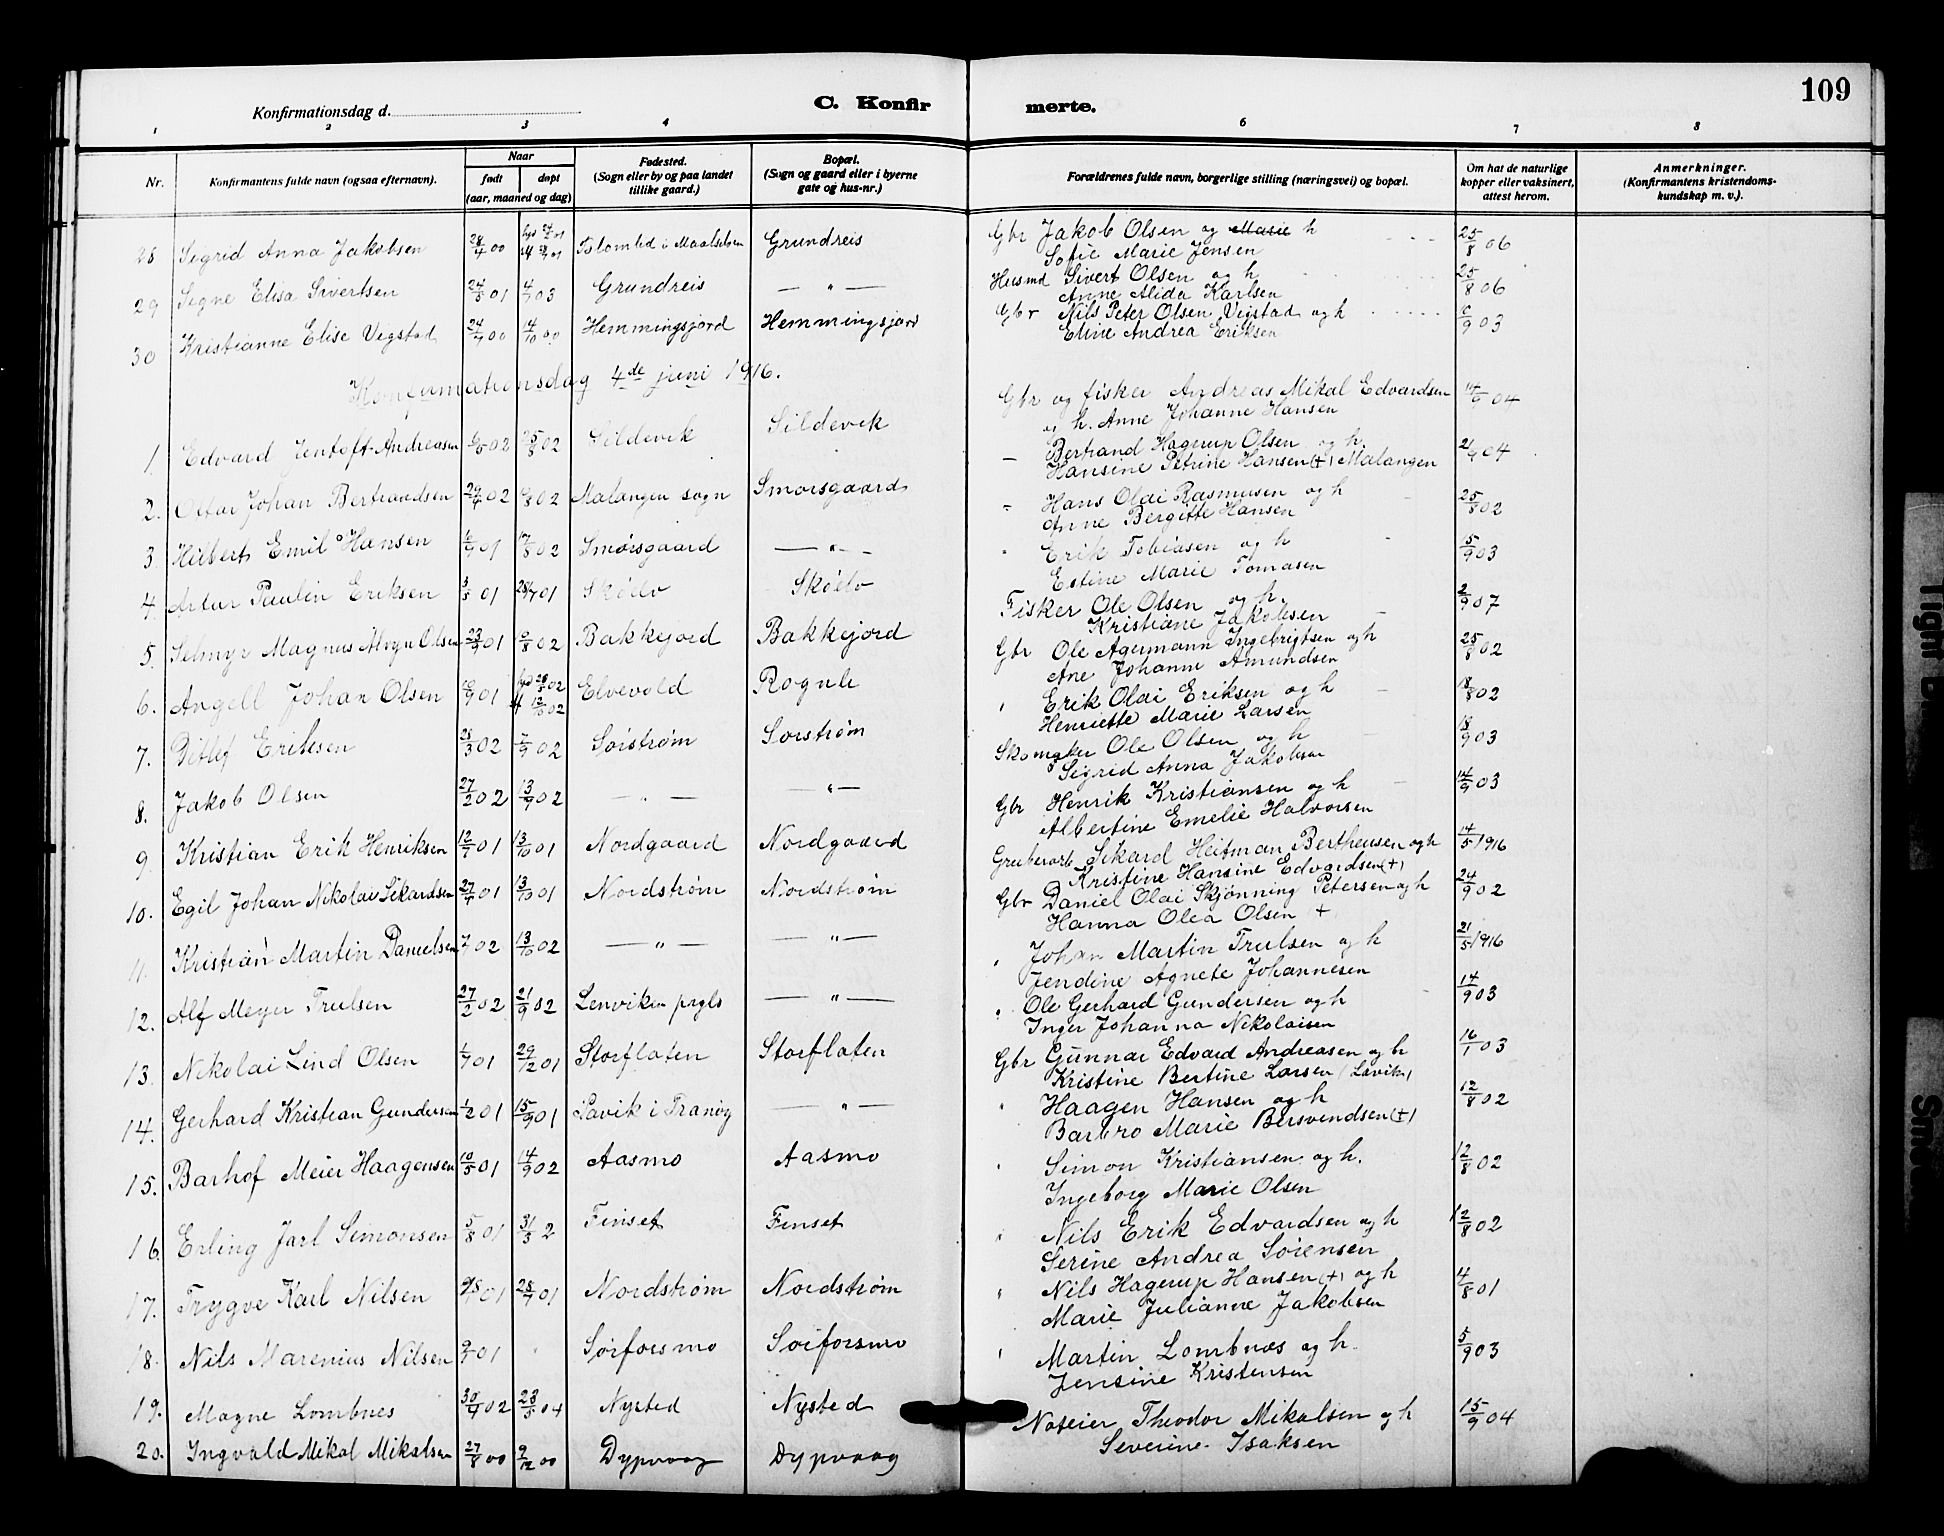 109
C. Konfir merte.
Konfirmationsdag d.
1 2 3 4 5 6 7 8
Nr.
Konfirmantens fulde navn (ogsaa efternavn).
Naar
født
døpt
(aar, maaned og dag)
Fødested.
(Sogn eller by og paa landet
tillike gaard.)
Bopæl.
(Sogn og gaard eller i byerne
gate og hus-nr.)
Forældrenes fulde navn, borgerlige stilling (næringsvei) og bopæl.
Om hat de naturlige
kopper eller vaksinert,
attest herom.
Anmerkninger.
(Konfirmantens kristendoms-
kundskap m. v.).
28 Sigrid Anna Jakobsen 28/4 00 i Maalselven Grundreis Gbr Jakob Olsen og Marie h 25/8 06
Sofie Marie Jensen
29 Signe Elisa Sivertsen 24/5 01 4/7 03 Grundreis — " — Husmd Sivert Olsen og h 25/8 06
Anne Alida Karlsen
30 Kristianne Elise Vegstad 24/7 00 14/10 00 Hemmingsjord Hemmingsjord Gbr Nils Peter Olsen Vegstad og h 6/9 03
Eline Andrea Eriksen
Konfirmationsdag 4de juni 1916.
1. Edvard Jentoft Andreasen 6/5 02 25/8 02 Sildevik Sildevik Gbr og fisker Andreas Mikal Edvardsen 14/9 04
og h. Anne Johanne Hansen
2. Ottar Johan Bertrandsen 29/4 02 6/8 02 Malangen sogn Smorsgaard — Bertrand Hagerup Olsen og h. 21/9 04
Hansine Petrine Hansen (+) Malangen
3. Hilbert Emil Hansen 6/9 01 17/8 02 Smørsgaard — " — Hans Olai Rasmusen og h 25/8 02
Anne Bergitte Hansen
4. Artur Paulin Eriksen 3/5 01 28/7 01 Skölv Skölv " Erik Tobiasen og h 5/9 03
Estine Marie Tomasen
5. Selmyr Magnus Alvyn Olsen 23/9 01 10/8 02 Bakkejord Bakkejord Fisker Ole Olsen og h. 2/9 07
Kristiane Jakobsen
6. Angell Johan Olsen 10/9 01 Elvevold Rognli Gbr Ole Agermann Ingebrigtsen og h 25/8 02
Ane Johanne Amundsen
7. Ditlef Eriksen 28/3 02 7/9 02 Sörstrøm Sorstrøm " Erik Olai Eriksen og h 18/8 02
Henriette Marie Larsen
8. Jakob Olsen 27/2 02 13/9 02 — " — — " — Skomaker Ole Olsen og h 18/9 03
Sigrid Anna Jakobsen
9. Kristian Erik Henriksen 12/7 01 13/10 01 Nordgaard Nordgaard Gbr Henrik Kristiansen og h 14/9 03
Albertine Emelie Halvorsen
10. Egil Johan Nikolai Sikardsen 27/7 01 13/10 01 Nordstrøm Nordstrøm Grubearb Sikard Heitman Bertheusen og h 14/5 1916
Kristine Hansine Edvardsen (+)
11. Kristian Martin Danielsen 02 13/10 02 — " — — " — Gbr Daniel Olai Skjønning Petersen og h 24/9 02
Hanna Olea Olsen (+)
12. Alf Meyer Trulsen 27/2 02 21/9 02 Lenviken prgld — " — " Johan Martin Trulsen og h 21/5 1916
Jendine Agnete Johannesen
13. Nikolai Lind Olsen 1/7 01 29/12 01 Storflaten Storflaten " Ole Gerhard Gundersen og h 14/9 03
Inger Johanna Nikolaisen
14. Gerhard Kristian Gundersen 1/2 01 15/9 01 Lavik i Tranöy — " — Gbr Gunnar Edvard Andreasen og h 16/1 03
Kristine Bertine Larsen (Lavik)
15. Barhof Meier Haagensen 10/5 01 14/9 02 Aasmo Aasmo " Haagen Hansen og h 12/8 02
Barbro Marie Bersvendsen (+)
16. Erling Jarl Simonsen 5/8 01 31/3 2 Finset Finset " Simon Kristiansen og h. 12/8 02
Ingeborg Marie Olsen
17. Trygve Karl Nilsen 01 28/7 01 Nordstrøm Nordstrøm " Nils Erik Edvardsen og h 12/8 02
Serine Andrea Sörensen
18. Nils Marenius Nilsen 01 Sörforsmo Sörforsmo " Nils Hagerup Hansen (+) og h 4/8 01
Marie Julianne Jakobsen
19. Magne Lombnes 30/7 02 23/5 04 Nysted Nysted " Martin Lombnæs og h. 5/9 03
Jensine Kristensen
20. Ingvald Mikal Mikalsen 27/8 00 9/12 00 Dypvaag Dypvaag Noteier Theodor Mikalsen og h 15/9 04
Severine Isaksen